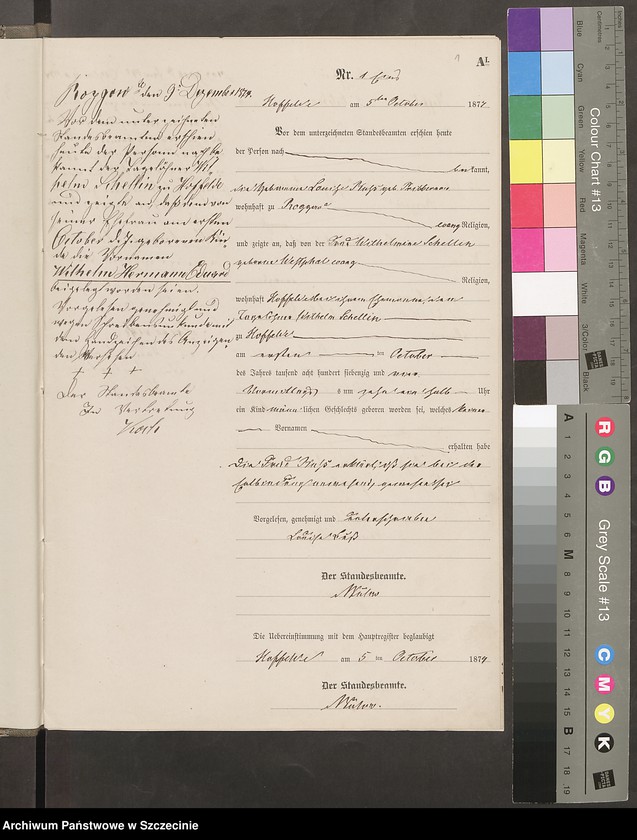 1
A¹.
Nr. 1 Eins
Hoffelde am 5ten October 1874
Vor dem unterzeichneten Standesbeamten erschien heute
der Person nach
bekannt,
die Hebamme Louise
wohnhaft zu Roggow
evang Religion,
und zeigte an, daß von der Frau Wilhelmine Schellin
geborene Westphal evang
Religion,
wohnhaft Hoffelde bei ihrem Ehemanne dem
Tagelöhner Wilhelm Schellin
zu Hoffelde
am ersten October
des Jahres tausend acht hundert siebenzig und vier
Vormittags um zehn ein halb Uhr
ein Kind männlichen Geschlechts geboren worden sei, welches keinen
Vornamen
erhalten habe
Die Frau erklärt daß sie bei der
Entbindung zugegen gewesen sei
Vorgelesen, genehmigt und unterschrieben
Louise
Der Standesbeamte.
Die Uebereinstimmung mit dem Hauptregister beglaubigt
Hoffelde am 5 ten October 1874
Der Standesbeamte.
Roggow den 9ten Dezember 1874.
Vor dem unterzeichneten
Standesbeamten erschien
heute der Person nach be
kannt der Tagelöhner Wil
helm Schellin zu Hoffelde
und zeigte an, daß dem von
seiner Ehefrau am ersten
October d. Js. geborenen Kin
de die Vornamen
Wilhelm Hermann Eduard
beigelegt worden seien.
Vorgelesen genehmigt und
wegen Schreibensunkunde mit
dem Handzeichen des Anzeigen
den versehen
† † †
Der Standesbeamte
In Vertretung
Colour Chart #13
Blue
Cyan
Green
Yellow
Red
Magenta
White
3/Color
Black
Centimetres
Inches
Grey Scale #13
R
G
B
C
M
Y
K
A 1 2 3 4 5 6 M 8 9 10 11 12 13 14 15 B 17 18 19
Archiwum Państwowe w Szczecinie